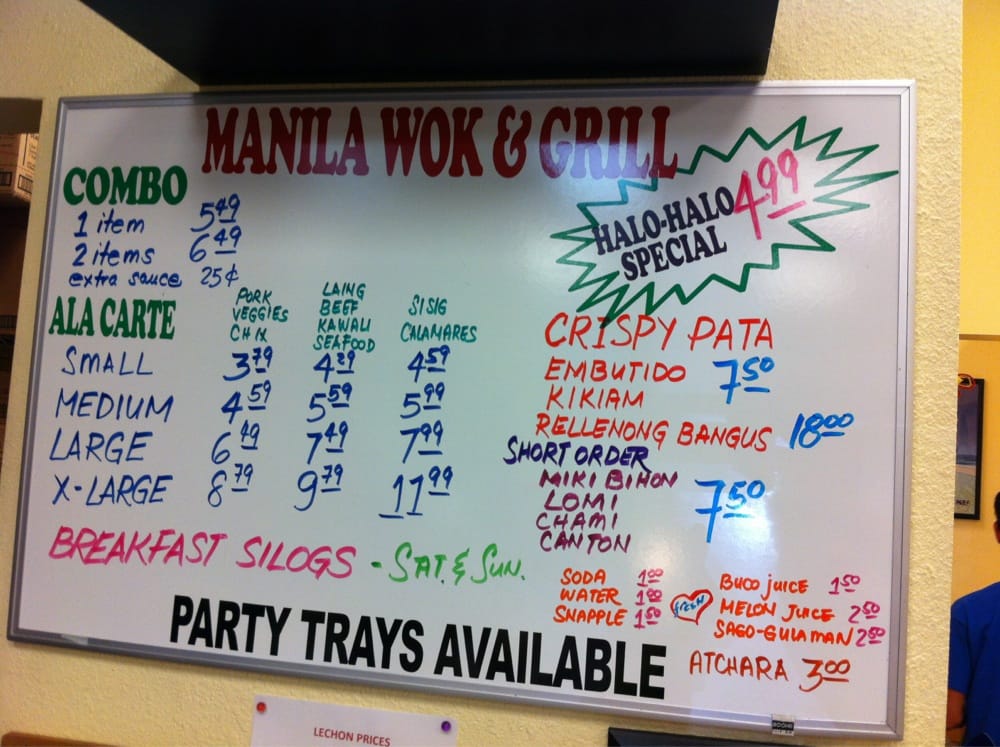 MANILA WOK & GRILL
COMBO
1 item 5 49
2 items 6 49
extra sauce 25¢
HALO-HALO 4 99
SPECIAL
ALA CARTE
PORK
VEGGIES
CHIX
LAING
BEEF
KAWALI
SEAFOOD
SISIG
CALAMARES
SMALL 3 79 4 29 4 59
MEDIUM 4 59 5 59 5 99
LARGE 6 49 7 49 7 99
X-LARGE 8 79 9 79 11 99
BREAKFAST SILOGS - SAT. & SUN.
CRISPY PATA
EMBUTIDO 7 50
KIKIAM
RELLENONG BANGUS 18 00
SHORT ORDER
MIKI BIHON 7 50
LOMI
CHAMI
CANTON
SODA 1 00
WATER 1 00
SNAPPLE 1 50
fresh
BUCO JUICE 1 50
MELON JUICE 2 50
SAGO-GULAMAN 2 50
ATCHARA 3 00
PARTY TRAYS AVAILABLE
LECHON PRICES